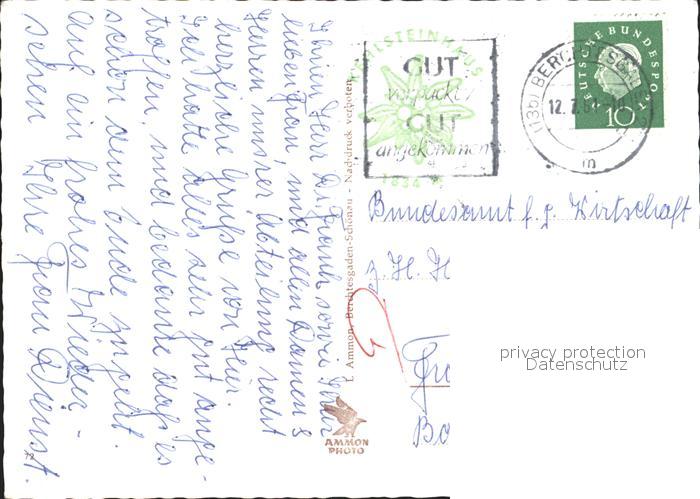 Ihnen Herr Dr. Frank sowie Ihrer
lieben Frau, und allen Damen &
Herren unsrer Abteilung recht
herzliche Grüße von hier.
Ich hatte alles sehr gut ange-
troffen, und bedaure daß es
schon dem Ende zugeht.
Auf ein frohes Wieder-
sehen Ihre Frau Dienst.
L. Ammon, Berchtesgaden-Schönau - Nachdruck verboten
KEHLSTEINHAUS
1834 M
GUT
verpackt
GUT
angekommen
(135) BERCHTESG
12.7.61
m
DEUTSCHE BUNDESPOST
10
Bundesamt f. g. Wirtschaft
z. H. H
Bo
AMMON
PHOTO
72
privacy protection
Datenschutz